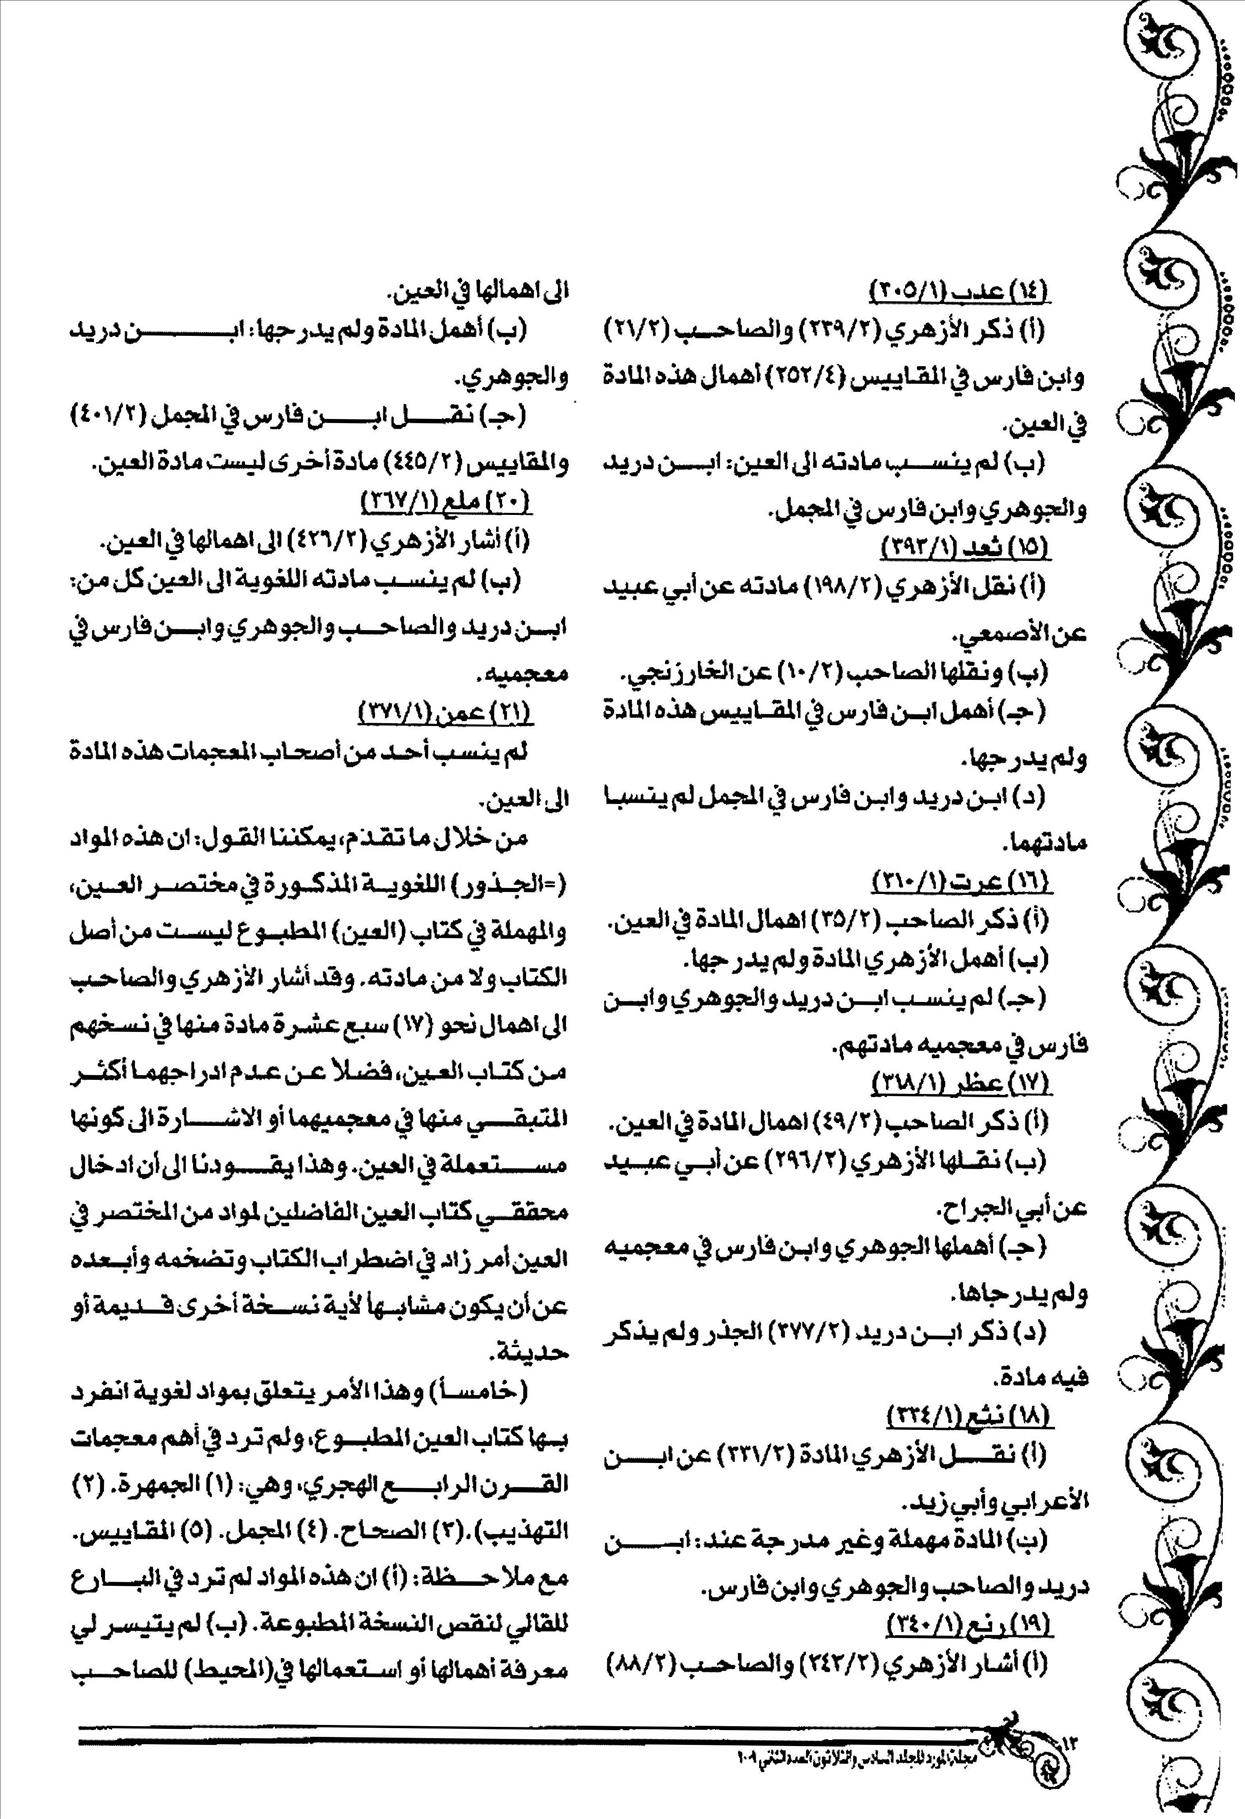 (١٤) عدب (٣٠٥/١)
(أ) ذكر الأزهري (٢٣٩/٢) والصاحب (٢١/٢)
وابن فارس في المقاييس (٢٥٢/٤) أهمال هذه المادة
في العين.
(ب) لم ينسب مادته الى العين: ابن دريد
والجوهري وابن فارس في المجمل.
(١٥) ثعد (٣٩٣/١)
(أ) نقل الأزهري (١٩٨/٢) مادته عن أبي عبيد
عن الأصمعي.
(ب) ونقلها الصاحب (١٠/٢) عن الخارزنجي.
(جـ) أهمل ابن فارس في المقاييس هذه المادة
ولم يدرجها.
(د) ابن دريد وابن فارس في المجمل لم ينسبا
مادتهما.
(١٦) عرت (٣١٠/١)
(أ) ذكر الصاحب (٣٥/٢) اهمال المادة في العين.
(ب) أهمل الأزهري المادة ولم يدرجها.
(جـ) لم ينسب ابن دريد والجوهري وابن
فارس في معجميه مادتهم.
(١٧) عظر (٣١٨/١)
(أ) ذكر الصاحب (٤٩/٢) اهمال المادة في العين.
(ب) نقلها الأزهري (٢٩٦/٢) عن أبي عبيد
عن أبي الجراح.
(جـ) أهملها الجوهري وابن فارس في معجميه
ولم يدرجاها.
(د) ذكر ابن دريد (٣٧٧/٢) الجذر ولم يذكر
فيه مادة.
(١٨) نثع (٣٣٤/١)
(أ) نقل الأزهري المادة (٣٣١/٢) عن ابن
الأعرابي وأبي زيد.
(ب) المادة مهملة وغير مدرجة عند: ابن
دريد والصاحب والجوهري وابن فارس.
(١٩) رنع (٣٤٠/١)
(أ) أشار الأزهري (٣٤٣/٢) والصاحب (٨٨/٢)
الى اهمالها في العين.
(ب) أهمل المادة ولم يدرجها: ابن دريد
والجوهري.
(جـ) نقل ابن فارس في المجمل (٤٠١/٢)
والمقاييس (٤٤٥/٢) مادة أخرى ليست مادة العين.
(٢٠) ملع (٣٦٧/١)
(أ) أشار الأزهري (٤٢٦/٢) الى اهمالها في العين.
(ب) لم ينسب مادته اللغوية الى العين كل من:
ابن دريد والصاحب والجوهري وابن فارس في
معجميه.
(٢١) عمن (٣٧١/١)
لم ينسب أحد من أصحاب المعجمات هذه المادة
الى العين.
من خلال ما تقدم، يمكننا القول: ان هذه المواد
(=الجذور) اللغوية المذكورة في مختصر العين،
والمهملة في كتاب (العين) المطبوع ليست من أصل
الكتاب ولا من مادته. وقد أشار الأزهري والصاحب
الى اهمال نحو (١٧) سبع عشرة مادة منها في نسخهم
من كتاب العين، فضلاً عن عدم ادراجهما أكثر
المتبقي منها في معجميهما أو الاشارة الى كونها
مستعملة في العين. وهذا يقودنا الى أن ادخال
محققي كتاب العين الفاضلين لمواد من المختصر في
العين أمر زاد في اضطراب الكتاب وتضخمه وأبعده
عن أن يكون مشابهاً لأية نسخة أخرى قديمة أو
حديثة.
(خامساً) وهذا الأمر يتعلق بمواد لغوية انفرد
بها كتاب العين المطبوع، ولم ترد في أهم معجمات
القرن الرابع الهجري، وهي: (١) الجمهرة. (٢)
التهذيب). (٣) الصحاح. (٤) المجمل. (٥) المقاييس.
مع ملاحظة: (أ) ان هذه المواد لم ترد في البارع
للقالي لنقص النسخة المطبوعة. (ب) لم يتيسر لي
معرفة أهمالها أو استعمالها في (المحيط) للصاحب
١٢
مجلة المورد المجلد السادس والثلاثون العدد الثاني ٢٠٠٩